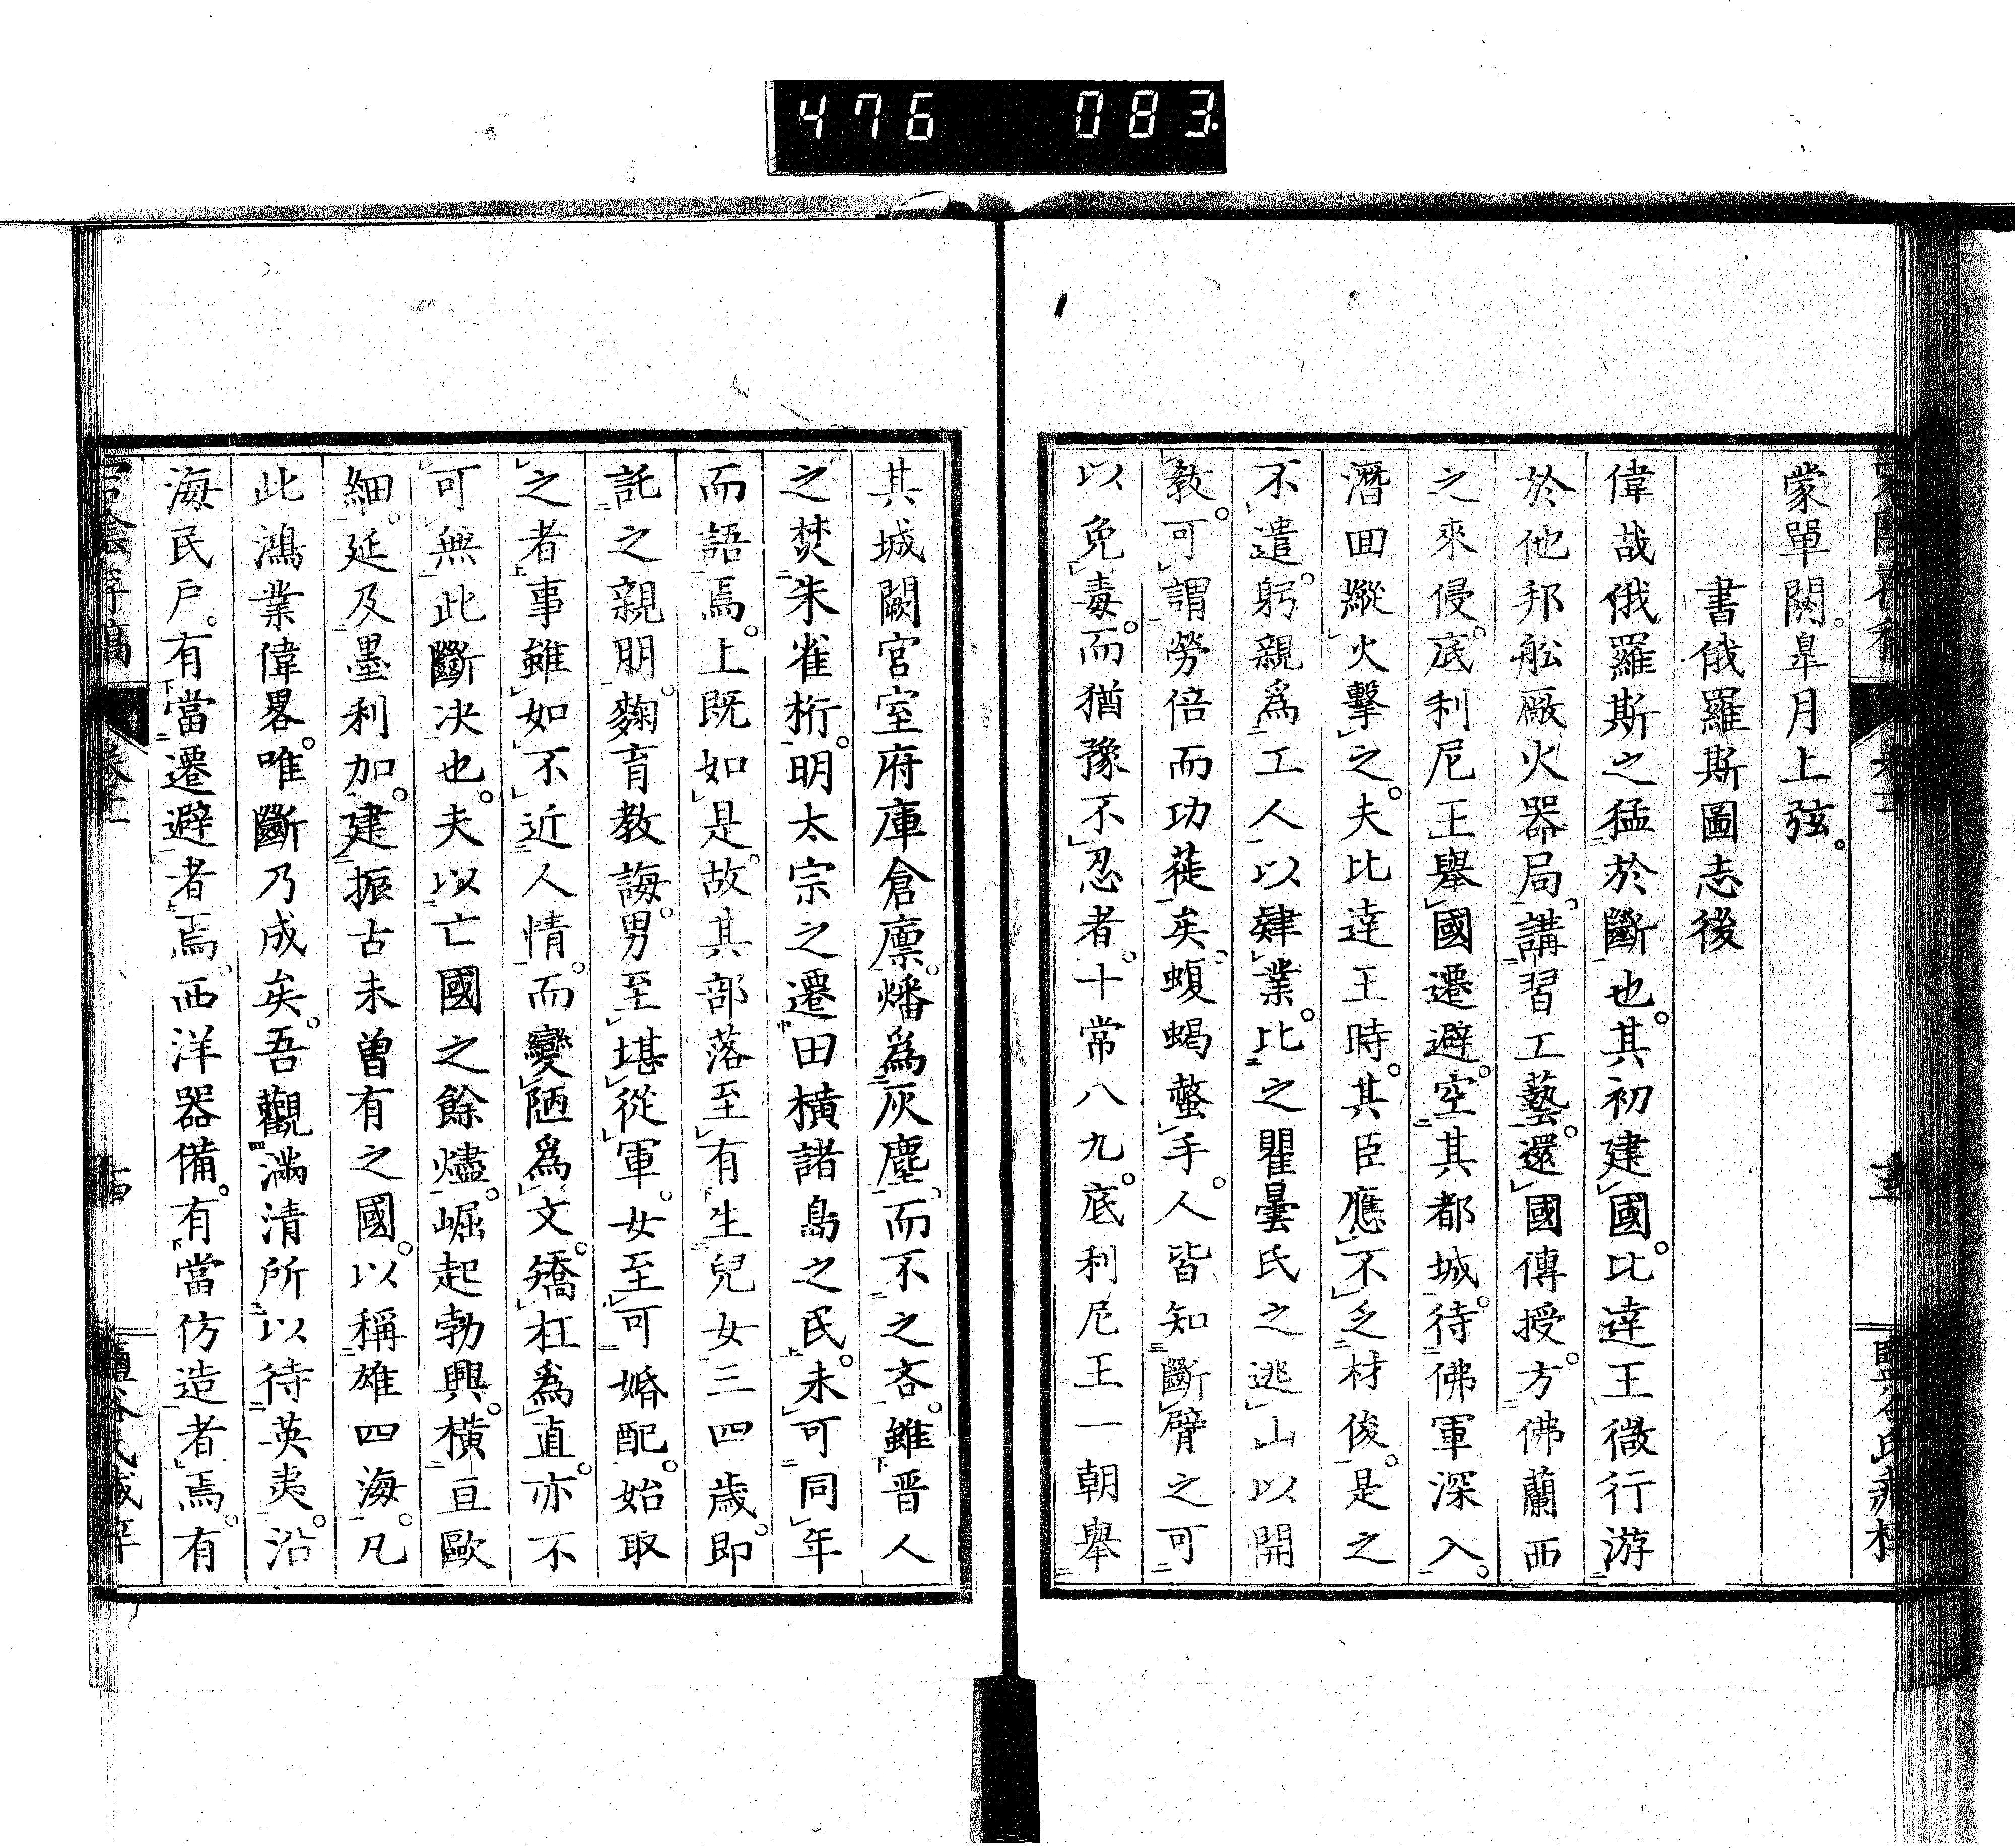 476 083
蒙單閼。皐月上弦。
書俄羅斯圖志後
偉哉俄羅斯之猛於斷也。其初建國。比達王微行游
於他邦舩廠火器局。講習工藝。還國傳授。方佛蘭西
之來侵。底利尼王舉國遷避。空其都城。待佛軍深入。
潛回縱火擊之。夫比達王時。其臣應不乏材俊。是之
不遣。躬親爲工人以肄業。比之瞿曇氏之逃山以開
教。可謂勞倍而功蓰矣。蝮蝎螫手。人皆知斷臂之可
以免毒。而猶豫不忍者。十常八九。底利尼王一朝舉
其城闕宮室府庫倉廩。燔爲灰塵。而不之吝。雖晋人
之焚朱雀桁。明太宗之遷田橫諸島之民。未可同年
而語焉。上既如是。故其部落至有生兒女三四歲。即
託之親朋。麴育教誨。男至堪從軍。女至可婚配。始取
之者。事雖如不近人情。而變陋爲文。矯枉爲直。亦不
可無此斷决也。夫以亡國之餘燼。崛起勃興。橫亘歐
細。延及墨利加。建振古未曾有之國。以稱雄四海。凡
此鴻業偉畧。唯斷乃成矣。吾觀滿清所以待英夷。沿
海民戶。有當遷避者焉。西洋器備。有當仿造者焉。有
宕陰存稿 卷十